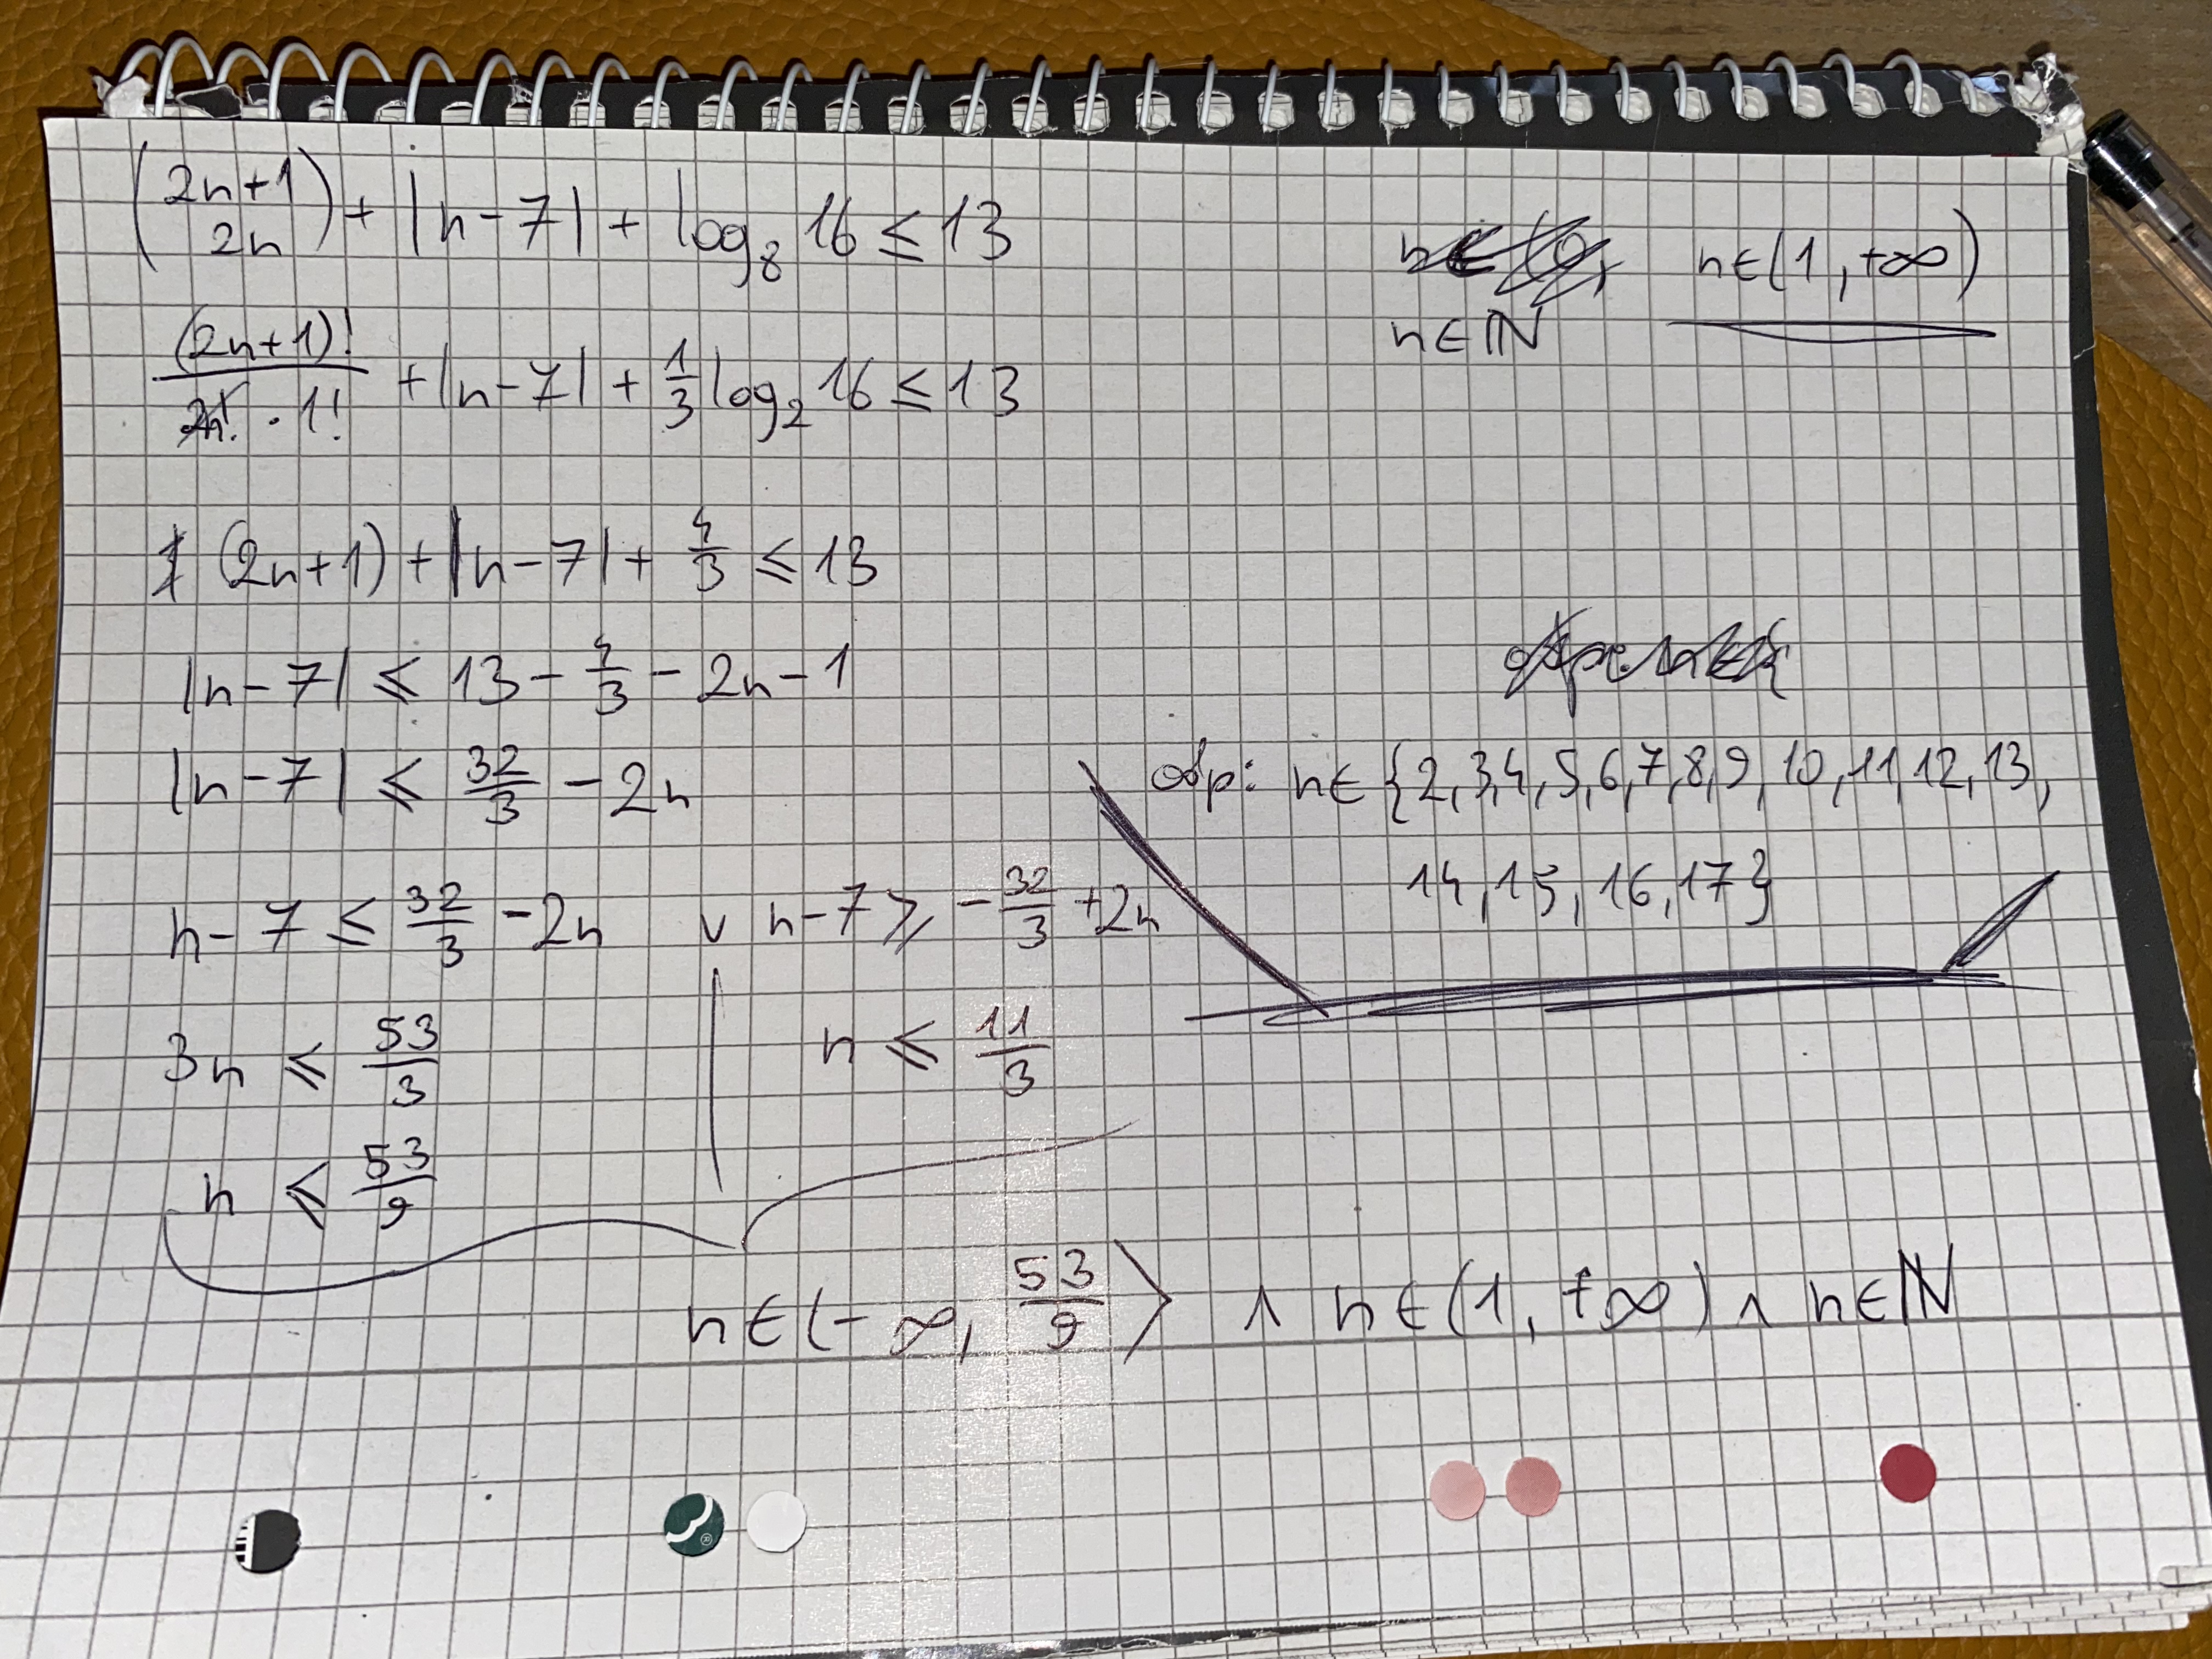 (2n+1 2n) + |n-7| + log₈ 16 ≤ 13
n∈(1,+∞)
n∈ℕ
(2n+1)!/2n!·1! + |n-7| + 1/3 log₂ 16 ≤ 13
(2n+1) + |n-7| + 4/3 ≤ 13
|n-7| ≤ 13 - 4/3 - 2n - 1
|n-7| ≤ 32/3 - 2n
odp: n∈{2,3,4,5,6,7,8,9,10,11,12,13,
14,15,16,17}
n-7 ≤ 32/3 - 2n ∨ n-7 ≥ -32/3 + 2n
3n ≤ 53/3
n ≤ 11/3
n ≤ 53/9
n∈(-∞, 53/9⟩ ∧ n∈(1,+∞) ∧ n∈ℕ